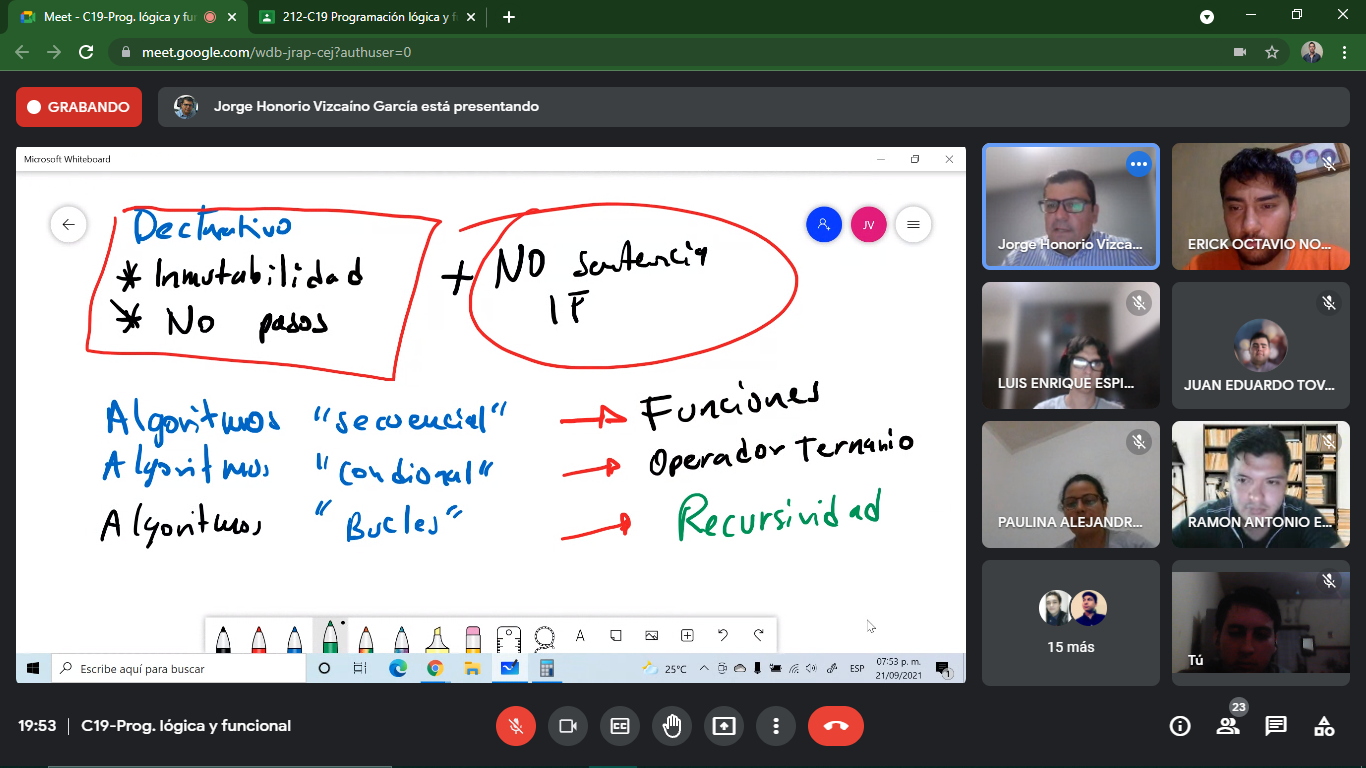 Meet - C19-Prog. lógica y fu
212-C19 Programación lógica y f
meet.google.com/wdb-jrap-cej?authuser=0
GRABANDO
Jorge Honorio Vizcaíno García está presentando
Microsoft Whiteboard
Declarativo
* Inmutabilidad
* No pasos
+ NO sentencia
IF
JV
Algoritmos "secuencial" → Funciones
Algoritmos "condional" → Operador Ternario
Algoritmos "Bucles" → Recursividad
Jorge Honorio Vizca...
ERICK OCTAVIO NO...
LUIS ENRIQUE ESPI...
JUAN EDUARDO TOV...
PAULINA ALEJANDR...
RAMON ANTONIO E...
15 más
Tú
A
Escribe aquí para buscar
25°C
ESP
07:53 p. m.
21/09/2021
1
19:53 | C19-Prog. lógica y funcional
23